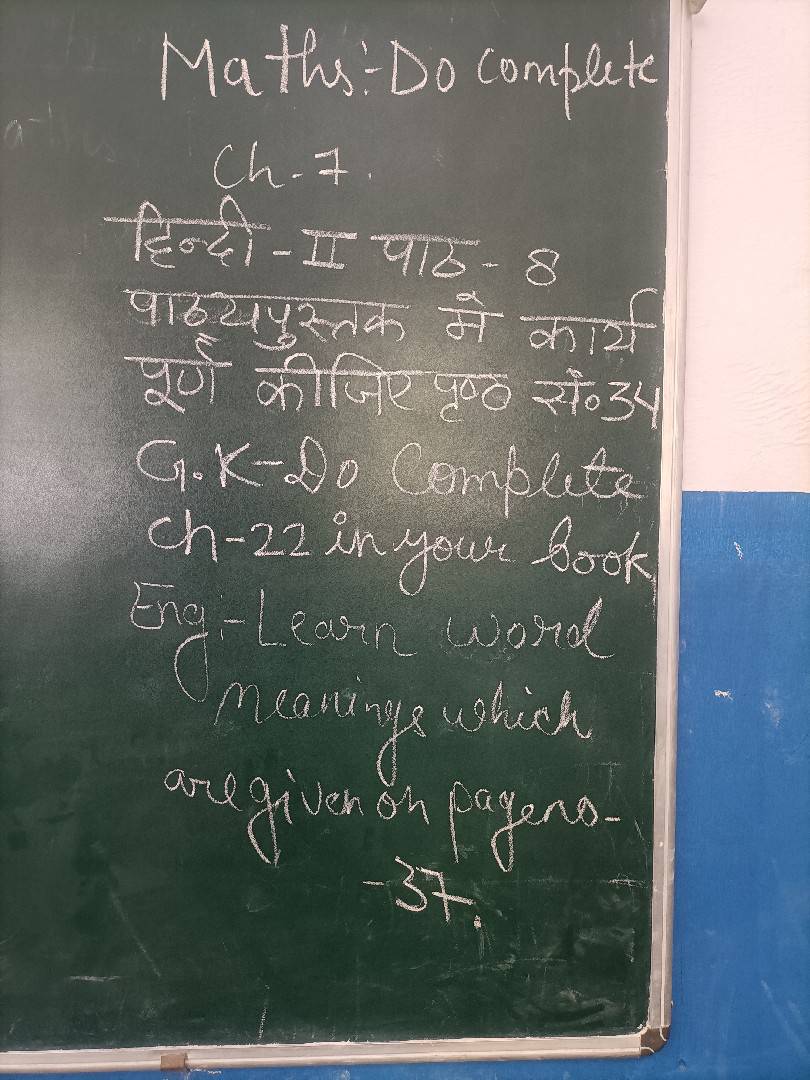 Maths:- Do complete
Ch-7.
हिन्दी - II पाठ - 8
पाठ्यपुस्तक में कार्य
पूर्ण कीजिए पृष्ठ सं० 34
G.K - Do Complete
Ch-22 in your book
Eng:- Learn word
meanings which
are given on page no-
-37.